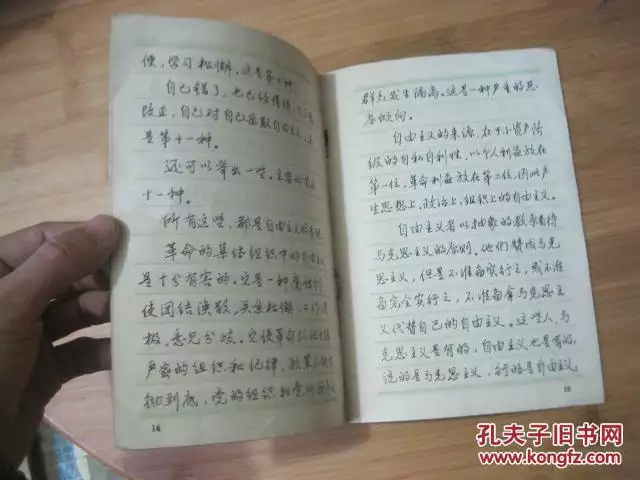 便，学习松懈。这是第十种。
自己错了，也已经懂得，又不想
改正，自己对自己采取自由主义。这
是第十一种。
还可以举出一些。主要的有这
十一种。
所有这些，都是自由主义的表现
革命的集体组织中的自由主义
是十分有害的。它是一种腐蚀剂，
使团结涣散，关系松懈，工作消
极，意见分歧。它使革命队伍失掉
严密的组织和纪律，政策不能贯
彻到底，党的组织和党所
14
群众发生隔离。这是一种严重的恶
劣倾向。
自由主义的来源，在于小资产阶
级的自私自利性，以个人利益放在
第一位，革命利益放在第二位，因此产
生思想上、政治上、组织上的自由主义。
自由主义者以抽象的教条看待
马克思主义的原则。他们赞成马克
思主义，但是不准备实行之，或不准
备完全实行之，不准备拿马克思主
义代替自己的自由主义。这些人，马
克思主义是有的，自由主义也是有的：
说的是马克思主义，行的是自由主义
15
孔夫子旧书网
www.kongfz.com